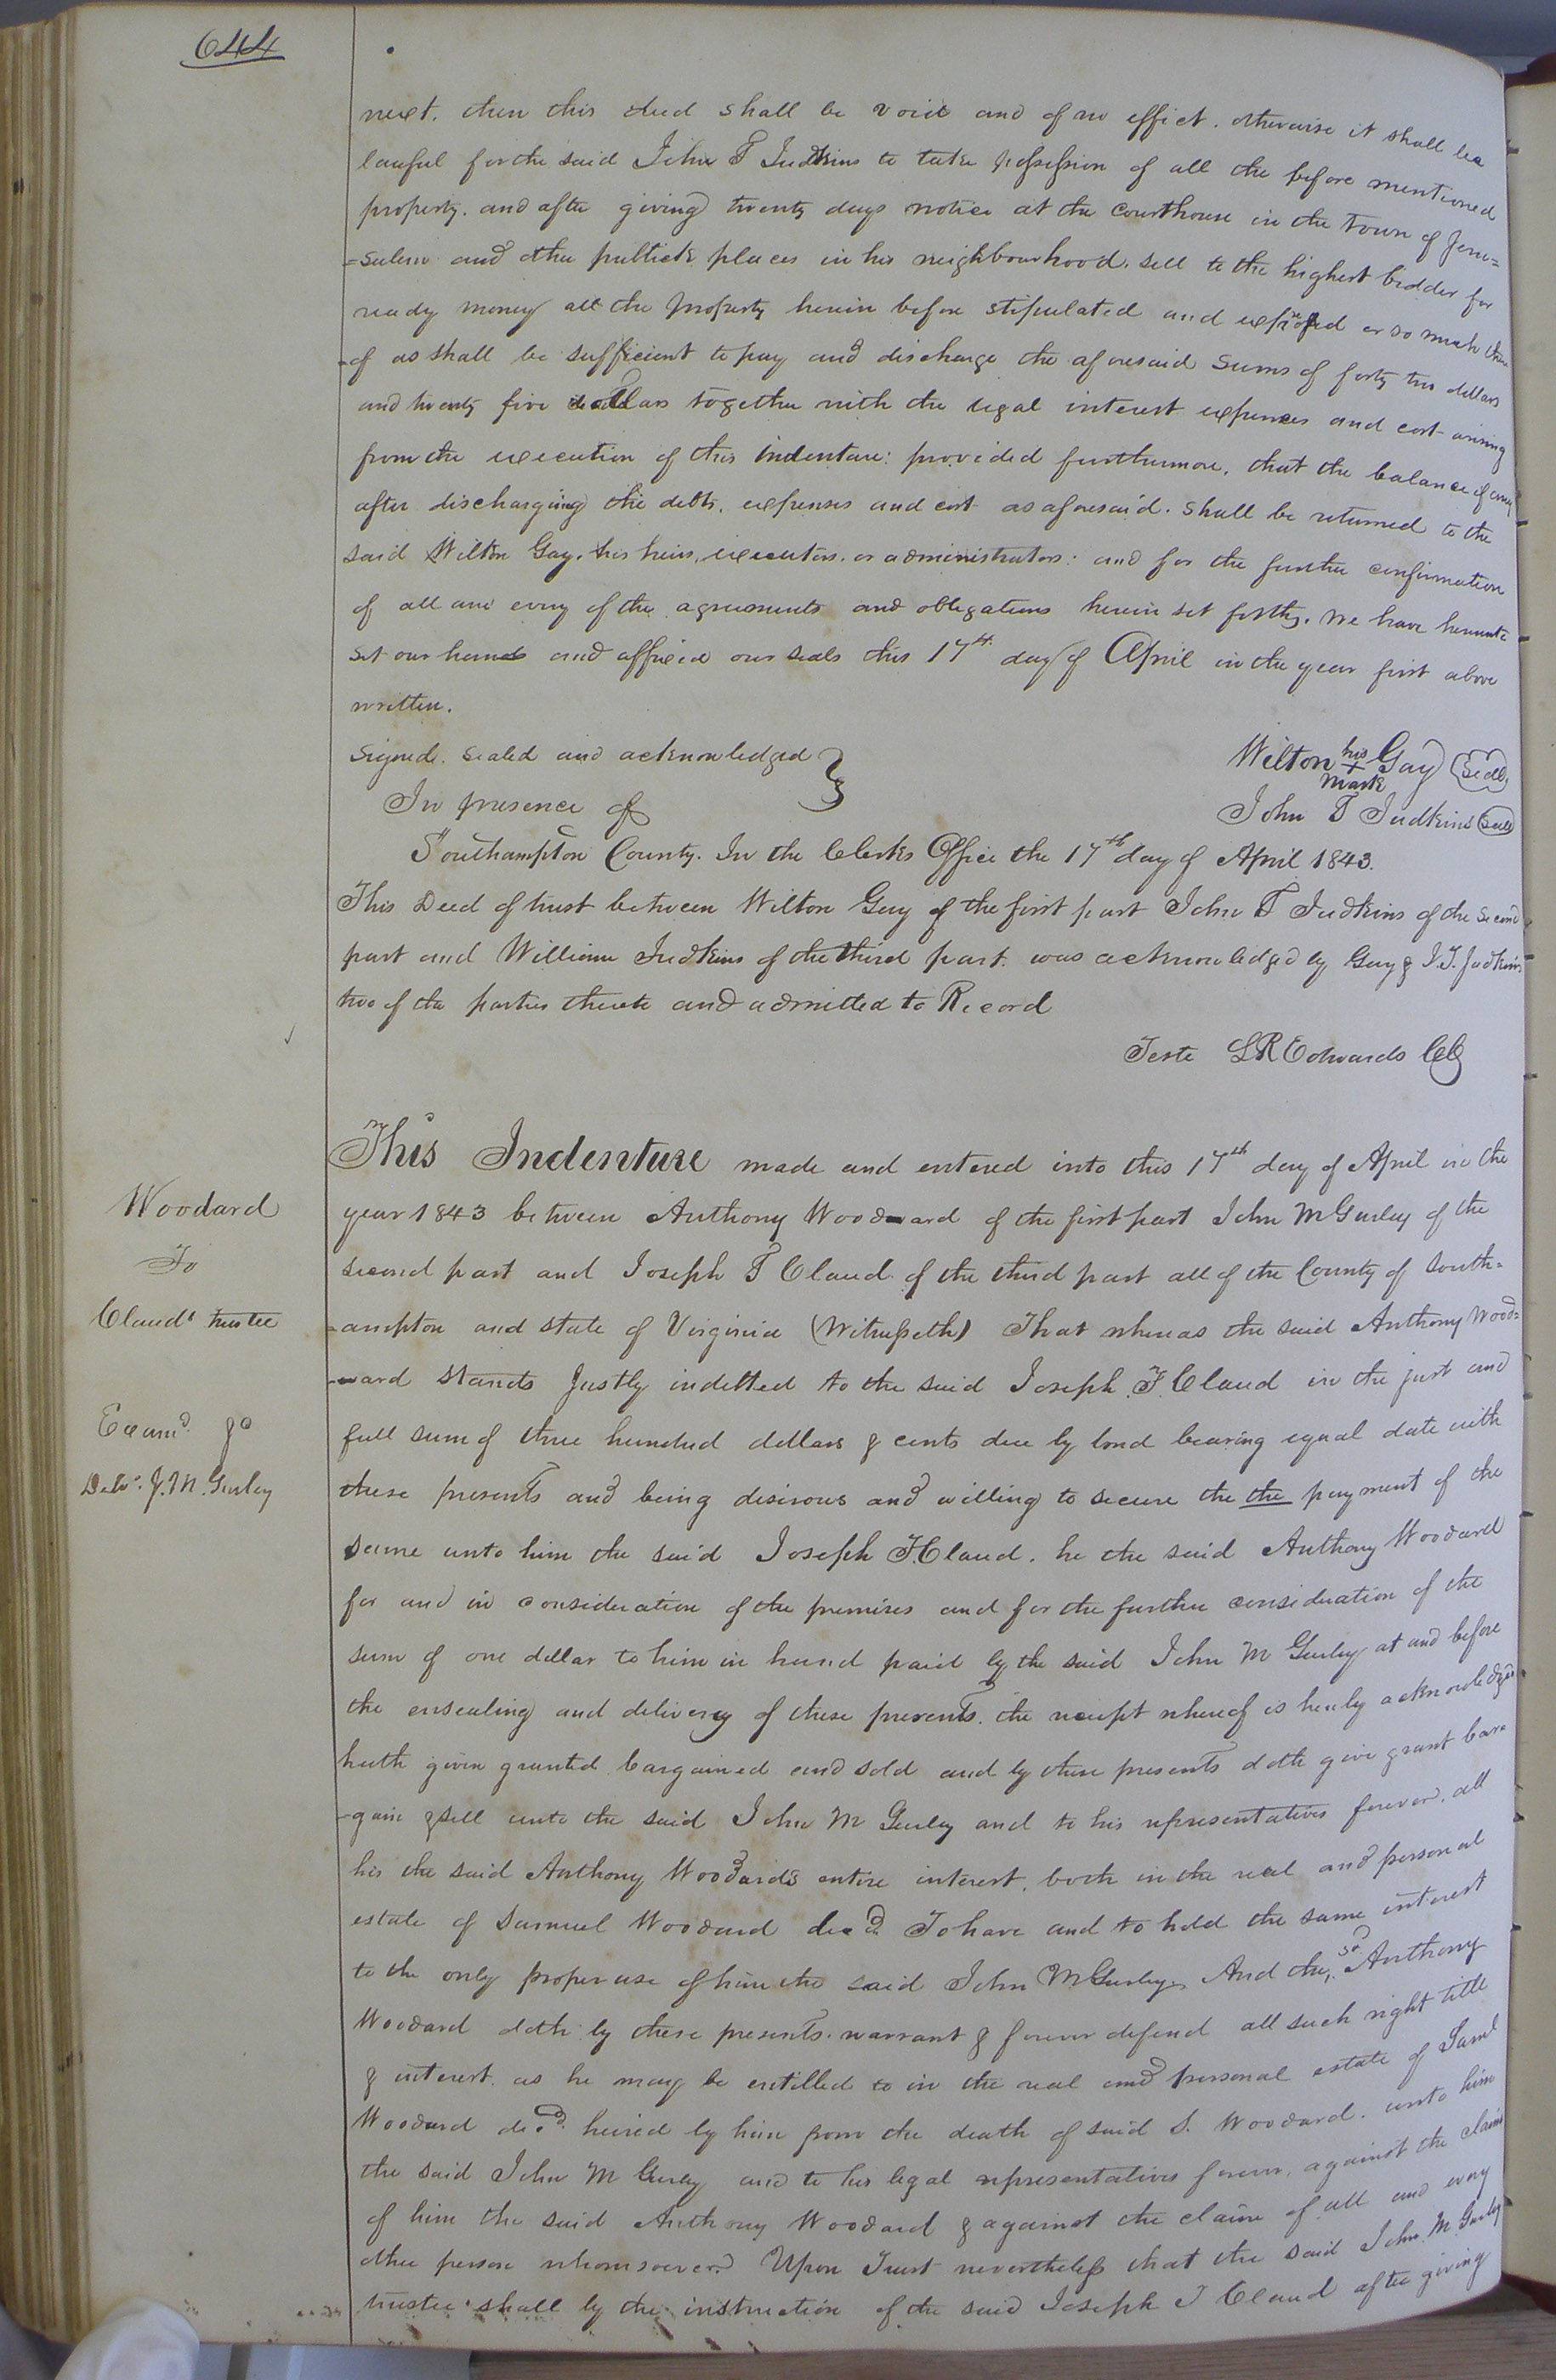 644
next. then this deed shall be void and of no effect. otherwise it shall be
lawful for the said John T Judkins to take possession of all the before mentioned
property. and after giving twenty days notice at the courthouse in the town of Jeru=
=salem and other publick places in his neighbourhood. sell to the highest bidder for
ready money all the property herein before stipulated and expressed or so much there
-of as shall be sufficient to pay and discharge the aforesaid sums of forty two dollars
and twenty five dollars together with the legal interest expenses and cost arising
from the execution of this indenture: provided furthermore, that the balance if any
after discharging the debts, expenses and cost as aforesaid. shall be returned to the
said Wilton Gay. his heirs, executors. or administrators: and for the further confirmation
of all and every of the agreements and obligations herein set forth. We have hereunto
set our hands and affixed our seals this 17th day of April in the year first above
written.
Signed. sealed and acknowledged
In presence of
Wilton his + mark Gay (Seal)
John T Judkins (Seal)
Southampton County. In the Clerks Office the 17th day of April 1843.
This Deed of trust between Wilton Gay of the first part John T Judkins of the second
part and William Judkins of the third part. was acknowledged by Gay & J.T. Judkins
two of the parties thereto and admitted to Record
Teste L R Edwards CC
Woodard
To
Clauds trustee
Examd.
Deld. J. M. Gurley
This Indenture made and entered into this 17th day of April in the
year 1843 between Anthony Woodward of the first part John M Gurley of the
second part and Joseph T Claud of the third part all of the County of South=
=ampton and state of Virginia (Witnesseth) That whereas the said Anthony Wood=
-ward stands Justly indetted to the said Joseph T. Claud in the just and
full sum of three hundred dollars & cents due by bond bearing equal date with
these presents and being desirous and willing to secure the the payment of the
same unto him the said Joseph T. Claud. he the said Anthony Woodard
for and in consideration of the premises and for the further consideration of the
sum of one dollar to him in hand paid by the said John M Gurley at and before
the ensealing and delivery of these presents. the receipt whereof is hereby acknowledged
hath given granted bargained and sold and by these presents doth give grant bar=
-gain & sell unto the said John M Gurley and to his representatives forever. all
his the said Anthony Woodards entire interest, both in the real and personal
estate of Samuel Woodard decd. To have and to hold the same interest
to the only proper use of him the said John M Gurley. And the sd. Anthony
Woodard doth by these presents. warrant & forever defend all such right title
& interest. as he may be entilled to in the real and personal estate of Saml
Woodard decd. heired by him from the death of said S. Woodard. unto him
the said John M Gurley and to his legal representatives forever, against the claim
of him the said Anthony Woodard & against the claim of all and every
other person whomsoever. Upon Trust nevertheless that the said John M. Gurley
trustee shall by the instruction of the said Joseph T Claud after giving